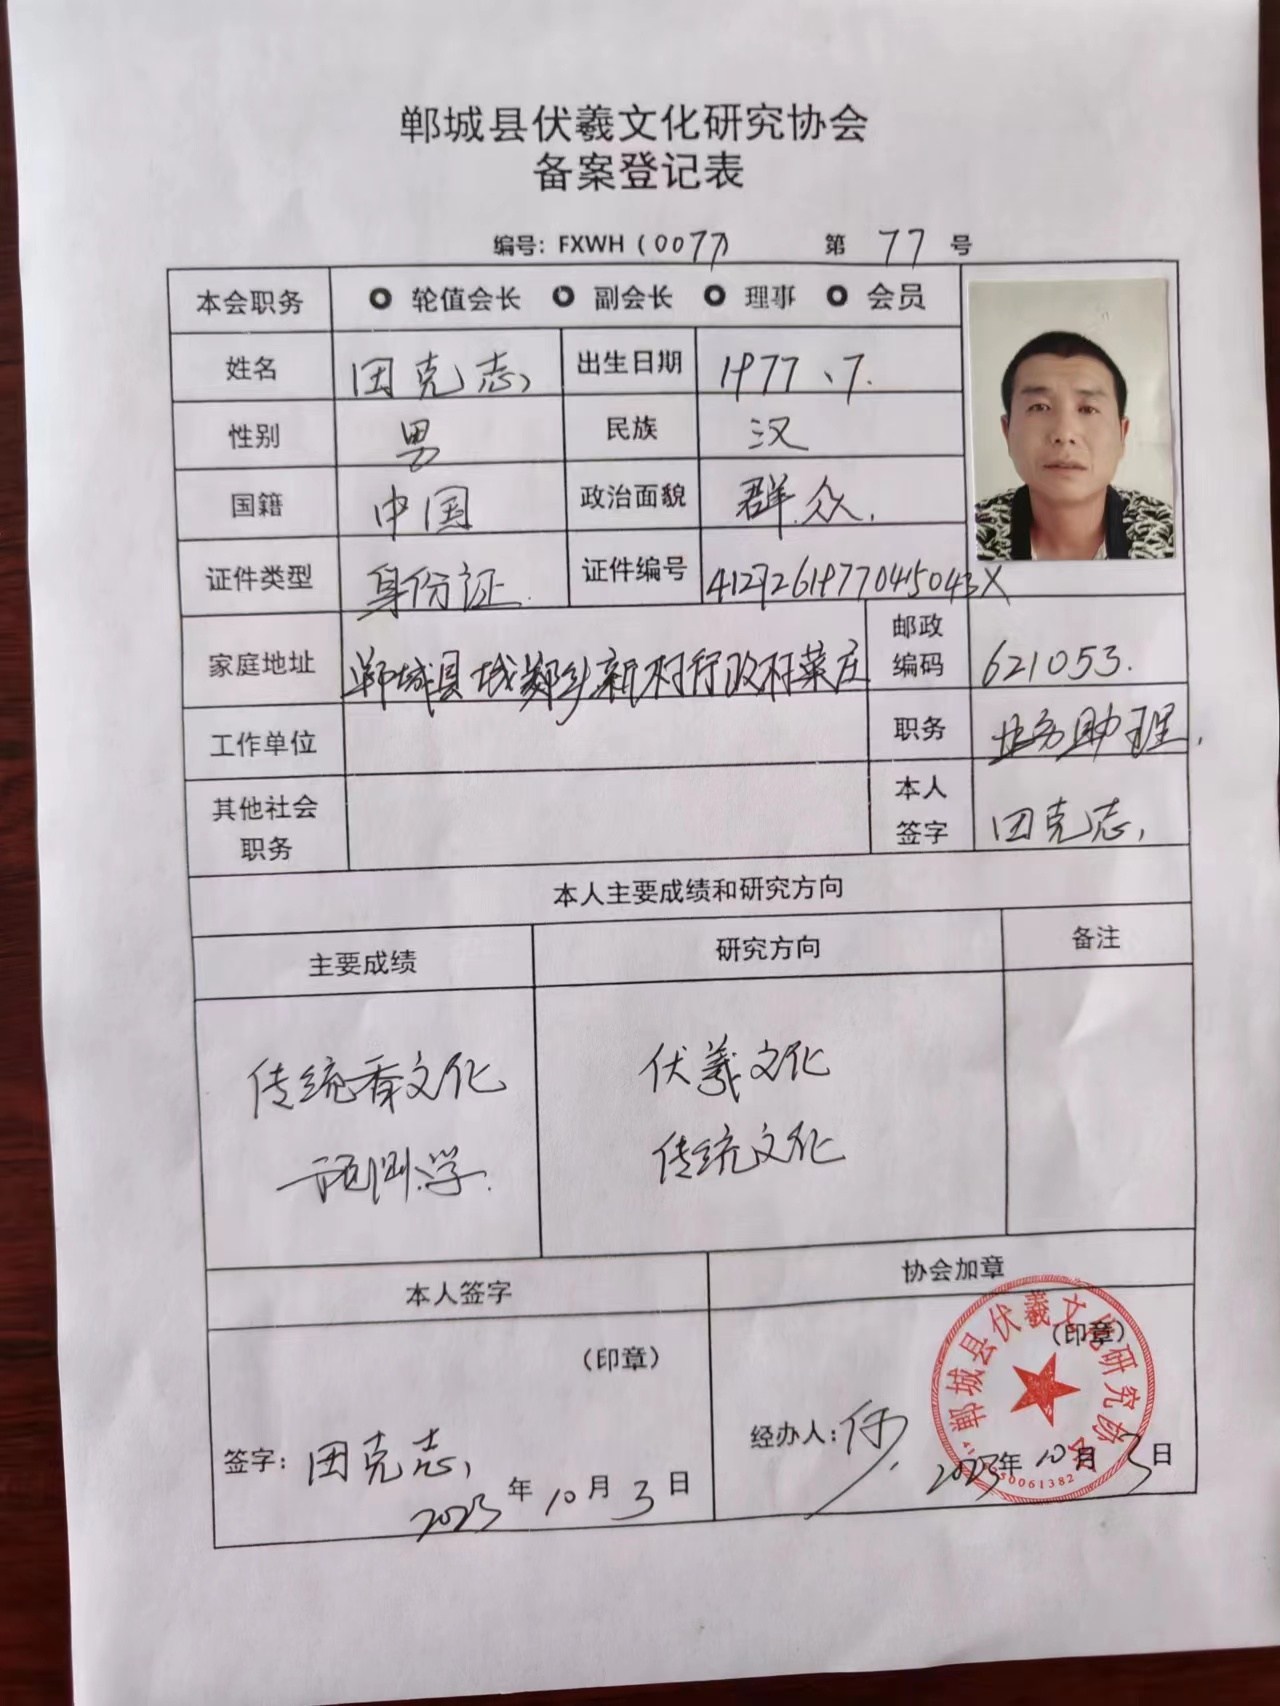 郸城县伏羲文化研究协会
备案登记表
编号：FXWH（0077） 第 77 号
本会职务 轮值会长 副会长 理事 会员
姓名 田克志 出生日期 1977、7.
性别 男 民族 汉
国籍 中国 政治面貌 群众.
证件类型 身份证. 证件编号 41272619770415043X
家庭地址 郸城县城郊乡新村行政村菜庄 邮政编码 621053.
工作单位 职务 业务助理.
其他社会职务 本人签字 田克志
本人主要成绩和研究方向
主要成绩 研究方向 备注
传统香文化 伏羲文化
预测学. 传统文化
本人签字 协会加章
（印章） （印章）
签字：田克志 经办人：
2023年10月3日 2023年10月3日
郸城县伏羲文化研究协会